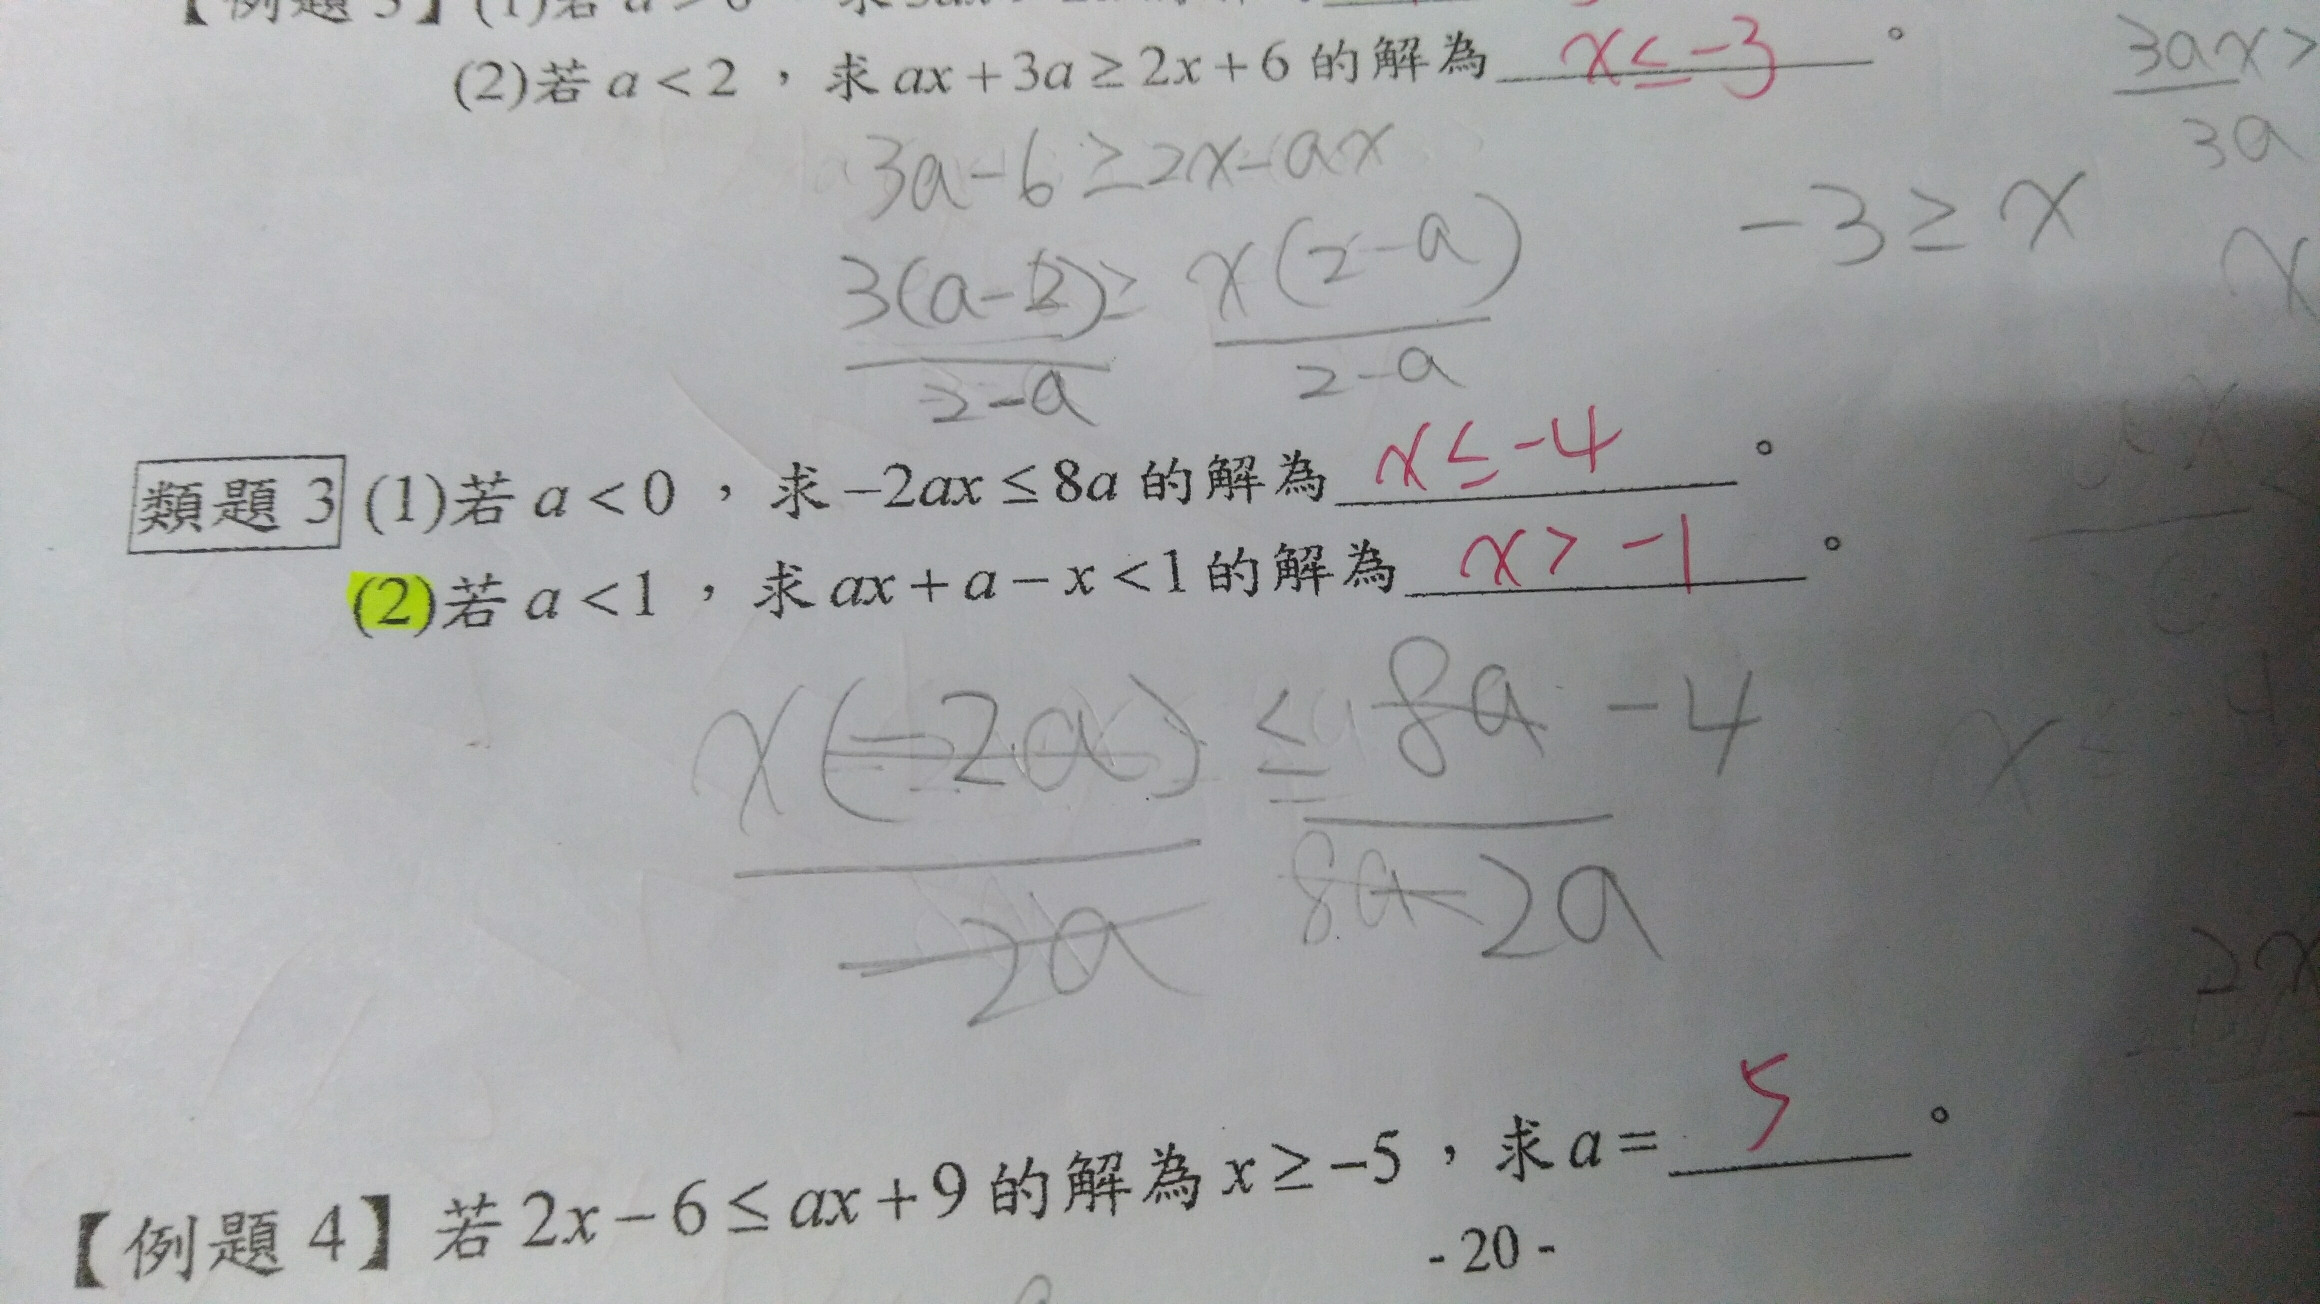 【例題 3】(1)若 a > 0
(2)若 a < 2 ，求 ax + 3a ≥ 2x + 6 的解為 x ≤ -3 。
3ax >
3a
3a - 6 ≥ 2x - ax
-3 ≥ x
x
3(a - 2) ≥ x(2 - a)
2 - a 2 - a
類題 3 (1)若 a < 0 ，求 -2ax ≤ 8a 的解為 x ≤ -4 。
(2)若 a < 1 ，求 ax + a - x < 1 的解為 x > -1 。
x(-2a) ≤ 8a - 4
-2a 8a - 2a
x ≤ -4
2x
【例題 4】若 2x - 6 ≤ ax + 9 的解為 x ≥ -5 ，求 a = 5 。
- 20 -